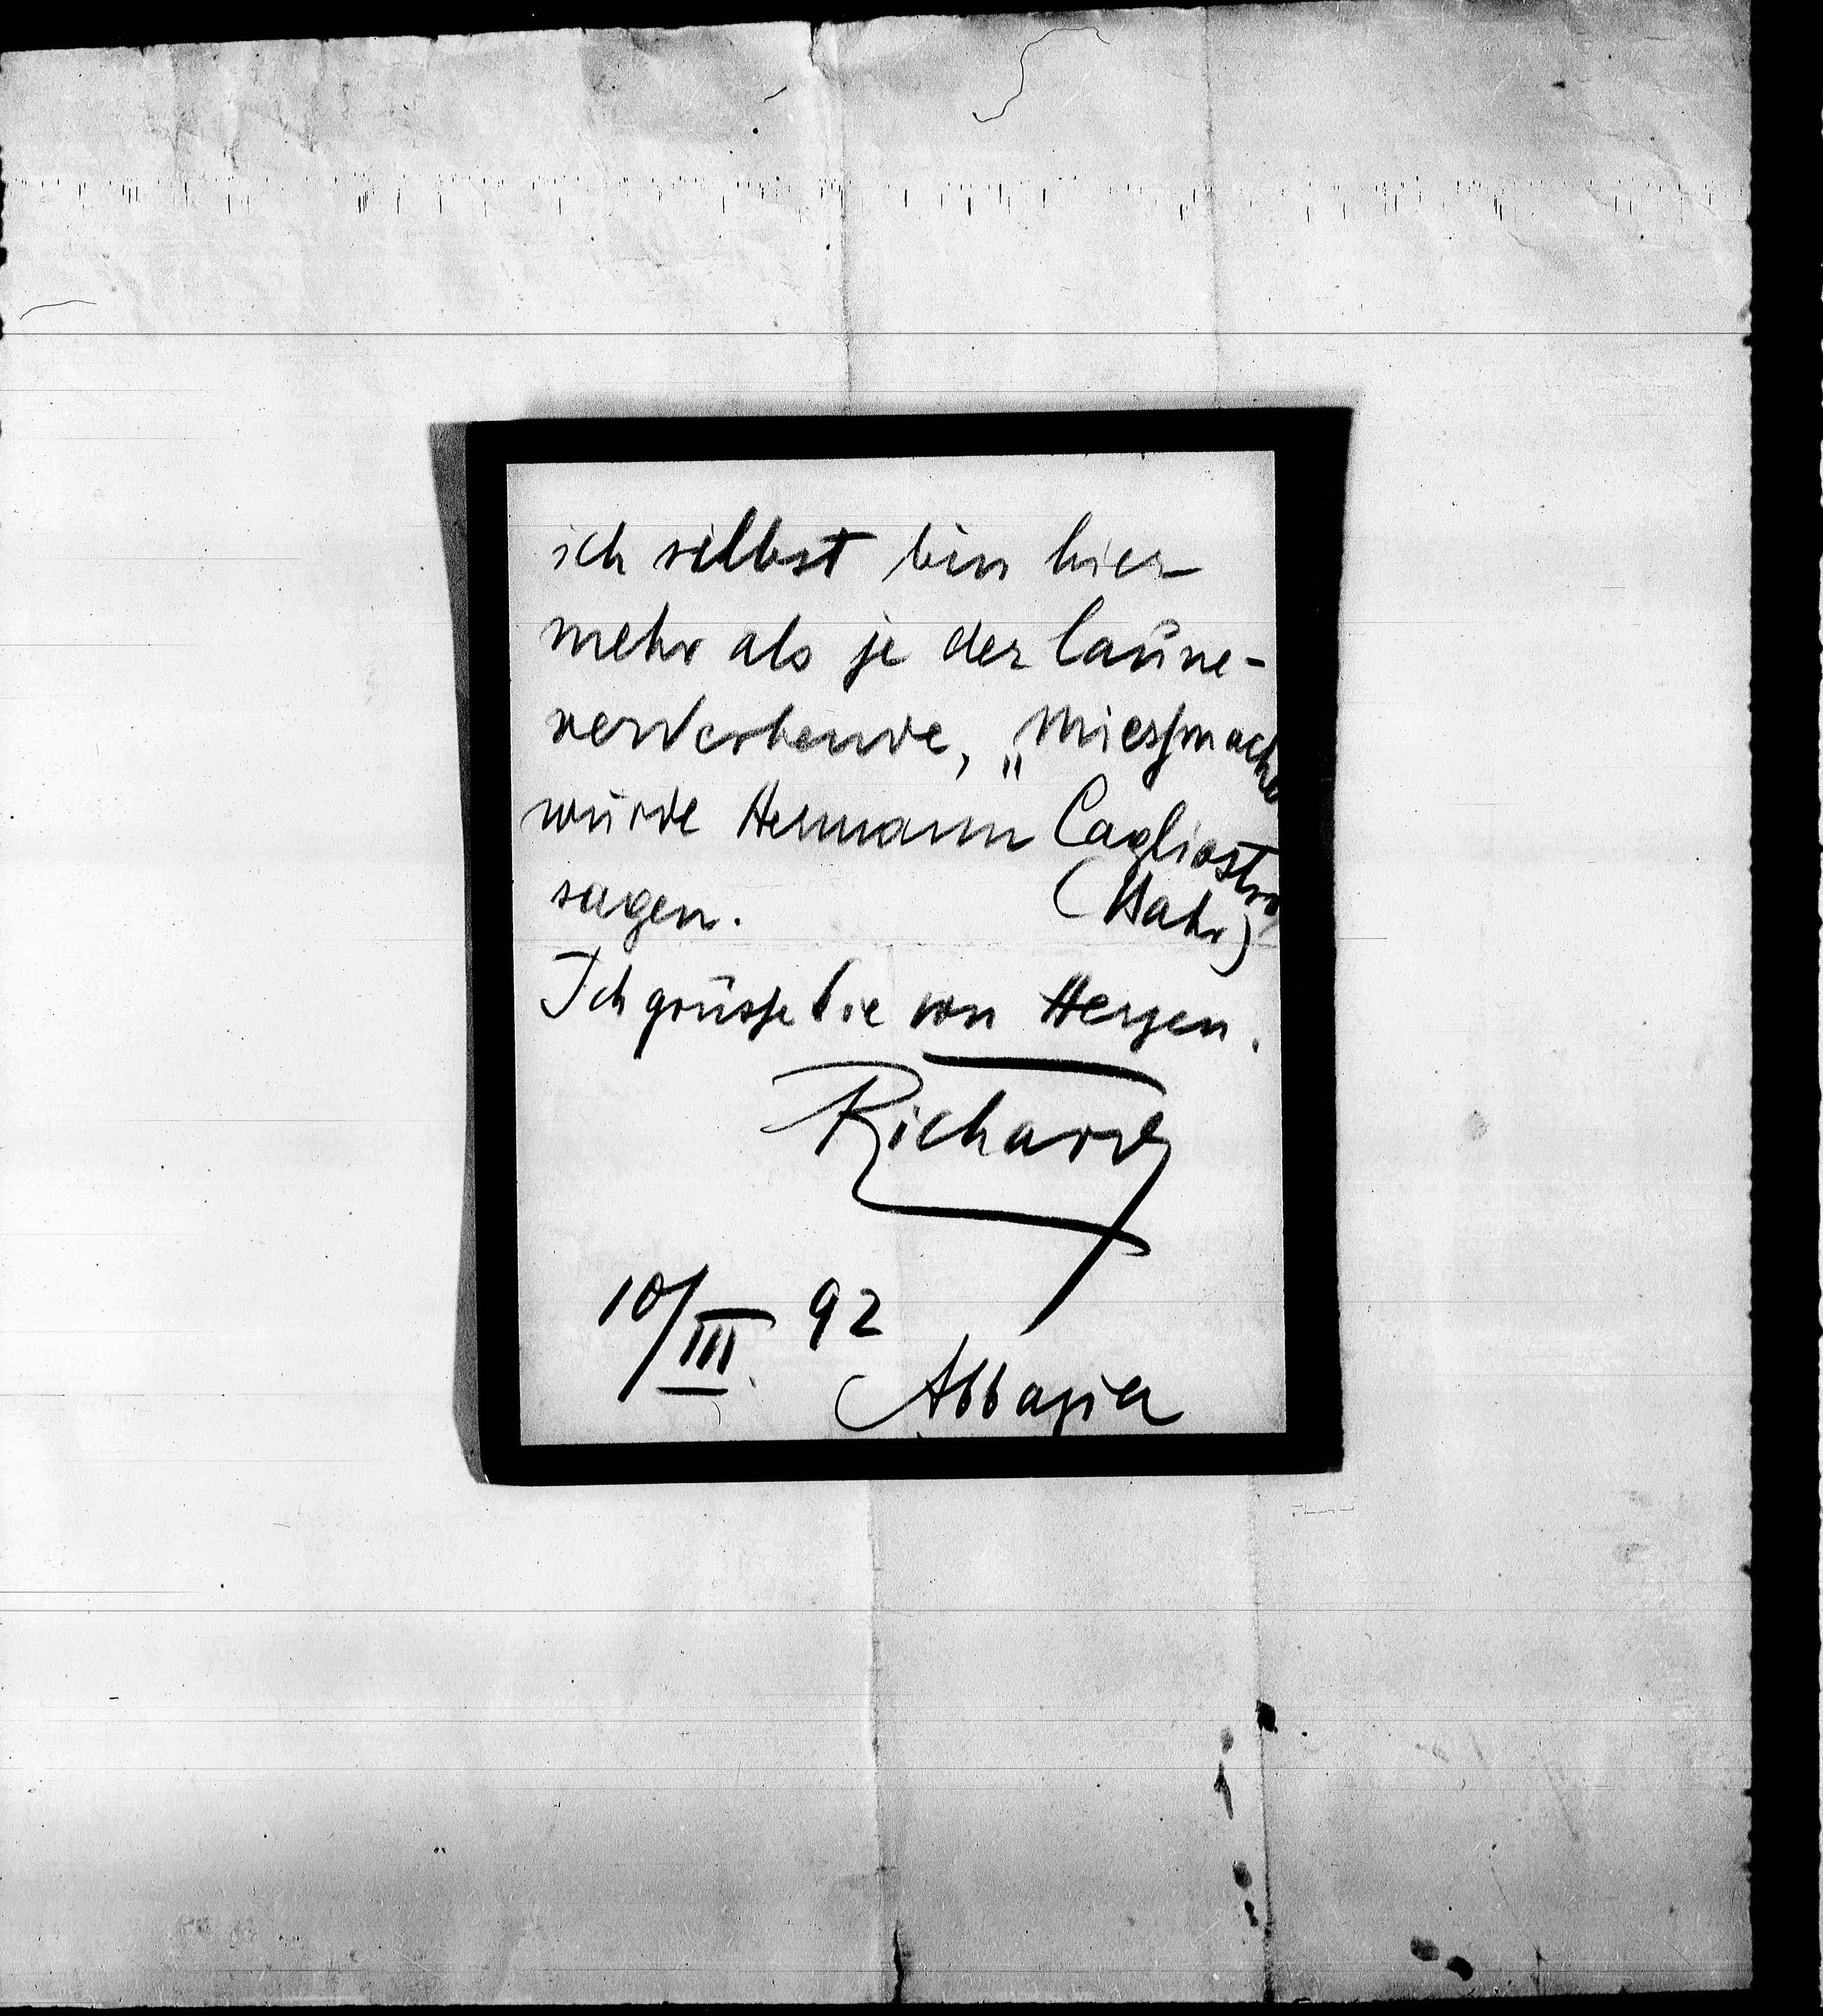 ich selbst bin hier
mehr als je der laune-
verderbende, „Miessmache
würde Hermann Cagliostro
sagen. (Bahr)
Ich grüsse Sie von Herzen.
Richard
10/III. 92
Abbazia